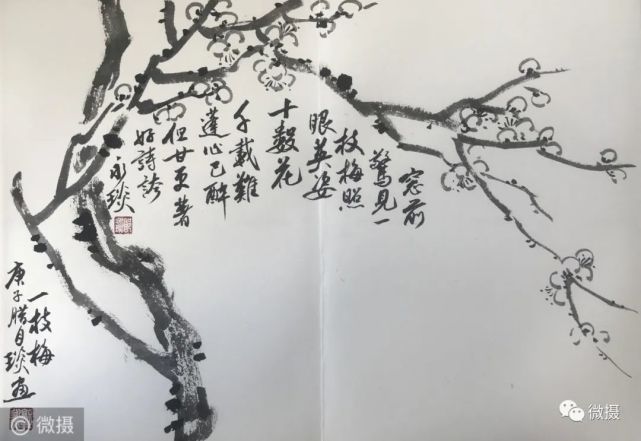 窓前
驚見一
枝梅照
眼英姿
十數花
千載難
蓬心已醉
但甘更著
好詩誇
永琰
一枝梅
庚子腊月琰画
© 微摄
微摄